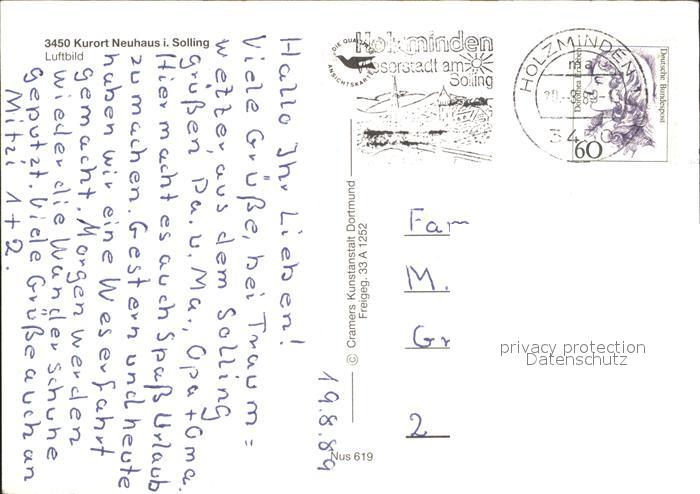 3450 Kurort Neuhaus i. Solling
Luftbild
Hallo Ihr Lieben!
Viele Grüße, bei Traum=
wetter aus dem Solling
grüßen Pa. u. Ma., Opa + Oma.
Hier macht es auch Spaß Urlaub
zu machen. Gestern und heute
haben wir eine Weserfahrt
gemacht. Morgen werden
wieder die Wanderschuhe
geputzt. Viele Grüße auch an
Mitzi 1 + 2.
19.8.89
© Cramers Kunstanstalt Dortmund
Freigeg. 33 A 1252
Nus 619
DIE QUALIT�
ANSICHTSKARTE
Holzminden
Weserstadt am
Solling
HOLZMINDEN 1
ma
3450
Dorothea Erxleben
Deutsche Bundespost
60
Fam
M.
Gr
2
privacy protection
Datenschutz